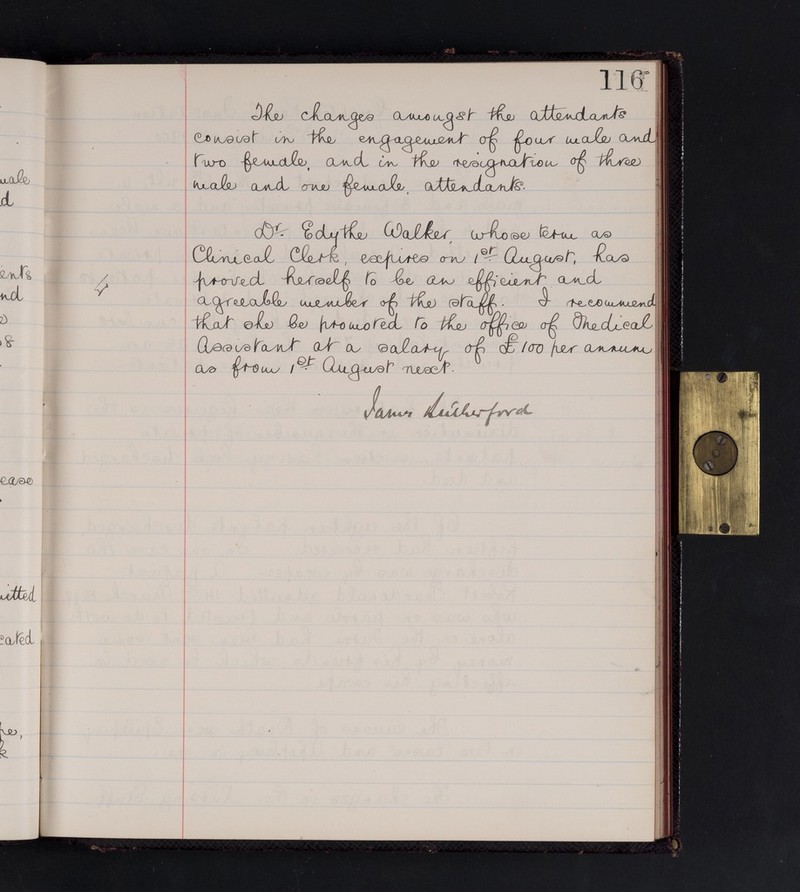 116
The changes amongst the attendants
consist in the engagement of four male and
two female, and in the resignation of three
male and one female, attendants.
Dr. Edythe Walker, whose term as
Clinical Clerk, expires on 1st August, has
proved herself to be an efficient and
agreeable member of the staff. I recommend
that she be promoted to the office of Medical
Assistant at a salary of £100 per annum
as from 1st August next.
James Rutherford